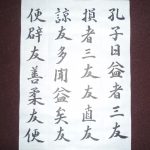 孔子曰益者三友
損者三友友直友
諒友多聞益矣友
便辟友善柔友便